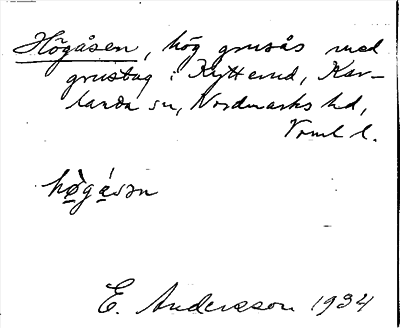 Högåsen, hög grusås med
grustag i Kytterud, Kar-
landa sn, Nordmarks hd,
Vrml l.
hø̀gásən
E. Andersson 1934